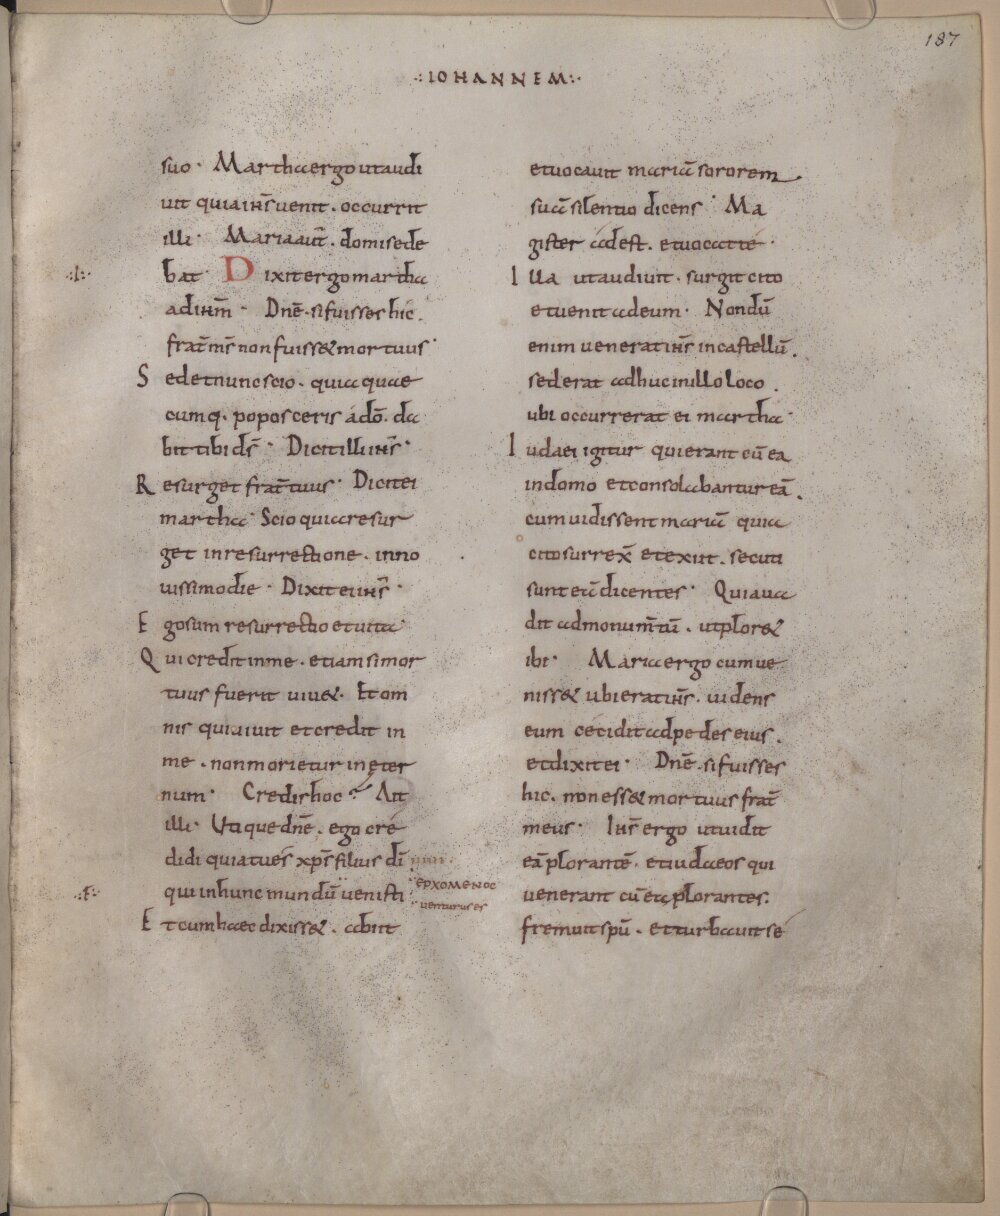 187
·:IOHANNEM:·
suo· Martha ergo ut audi
uit quia ihs̄ uenit· occurrit
illi· Maria aut̄· domi sede
·:I:·
bat· Dixit ergo martha
ad ihm̄· Dnē· si fuisses hic·
frat̄ ms̄ non fuiss& mortuus·
Sed et nunc scio· quia quae
cumq· poposceris á dō· da
bit tibi ds̄· Dicit illi ihs̄·
Resurget frat̄ tuus· Dicit ei
martha· Scio quia resur
get in resurrectione· in no
uissimo die· Dixit ei ihs̄·
Ego sum resurrectio et uita·
Qui credit in me· etiam si mor
tuus fuerit uiu&· Et om
nis qui uiuit et credit in
me· non morietur in eter
num· Credis hoc? Ait
illi· Utique dnē· ego cre
didi quia tu es xps̄ filius dī
·:F:·
qui in hunc mundū uenisti
ερχομενος
uenturus es
Et cum haec dixiss&· abiit
et uocauit mariā sororem
suā silentio dicens· Ma
gister adest· et uocat te·
Illa ut audiuit· surgit cito
et uenit ad eum· Nondū
enim uenerat ihs̄ in castellū·
sed erat adhuc in illo loco·
ubi occurrerat ei martha·
Iudaei igitur qui erant cū ea
in domo et consolabantur eā·
cum uidissent mariā quia
cito surrex̄ et exiit· secuti
sunt eā dicentes· Quia ua
dit ad monum̄tū· ut plor&
ibi· Maria ergo cum ue
niss& ubi erat ihs̄· uidens
eum cecidit ad pedes eius·
et dixit ei· Dnē· si fuisses
hic· non ess& mortuus frat̄
meus· Ihs̄ ergo ut uidit
eā plorantē· et iudaeos qui
uenerant cū ea plorantes:
fremuit spū· et turbauit se